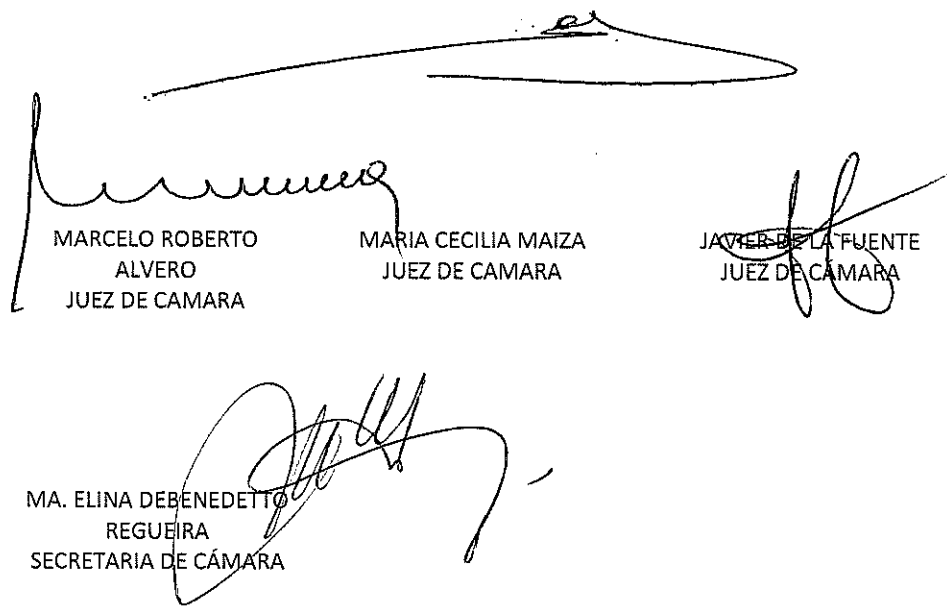 MARCELO ROBERTO
ALVERO
JUEZ DE CAMARA
MARIA CECILIA MAIZA
JUEZ DE CAMARA
JAVIER DE LA FUENTE
JUEZ DE CÁMARA
MA. ELINA DEBENEDETTO
REGUEIRA
SECRETARIA DE CÁMARA